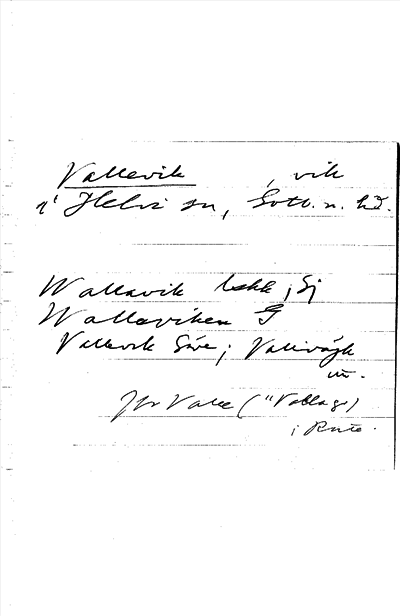 Vallevik , vik
i Hellvi sn, Gotl. n. hd.
Wallavik lskk, Sj
Wallaviken G
Vallevik Säve; Vallivägk
un.
Jfr Valle ("Vallage)
i Rute.